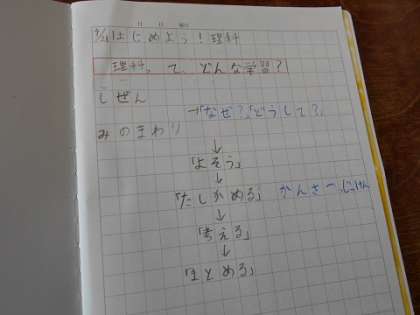 はじめよう！理科
理科って、どんな学習？
しぜん
「なぜ？」「どうして？」
みのまわり
↓
「よそう」
↓
「たしかめる」 かんさつ、じっけん
↓
「考える」
↓
「まとめる」